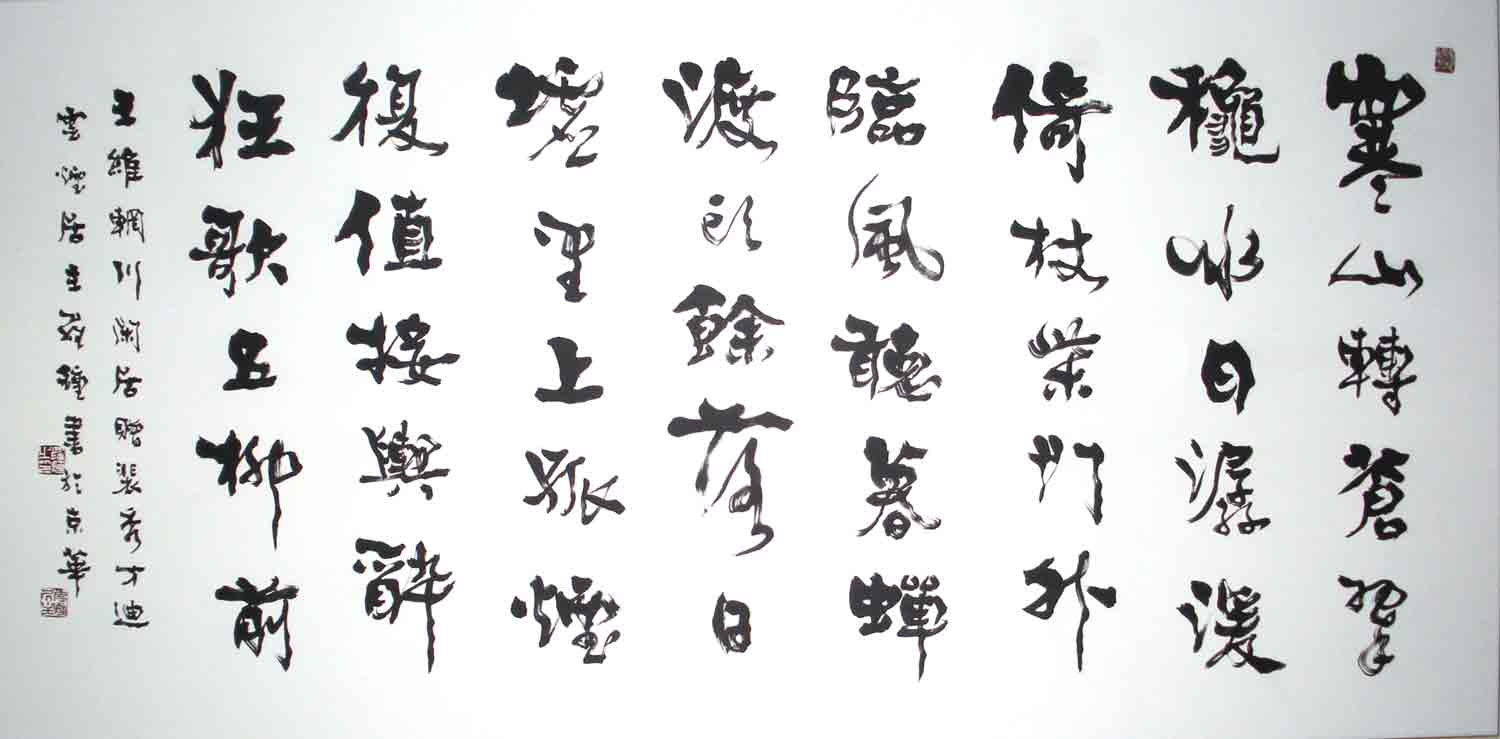 寒山轉蒼翠
龝水日潺湲
倚杖柴門外
臨風聽暮蟬
渡頭餘落日
墟里上孤煙
復值接輿醉
狂歌五柳前
王維輞川閑居贈裴秀才迪
雲煙居主鍾書於京華